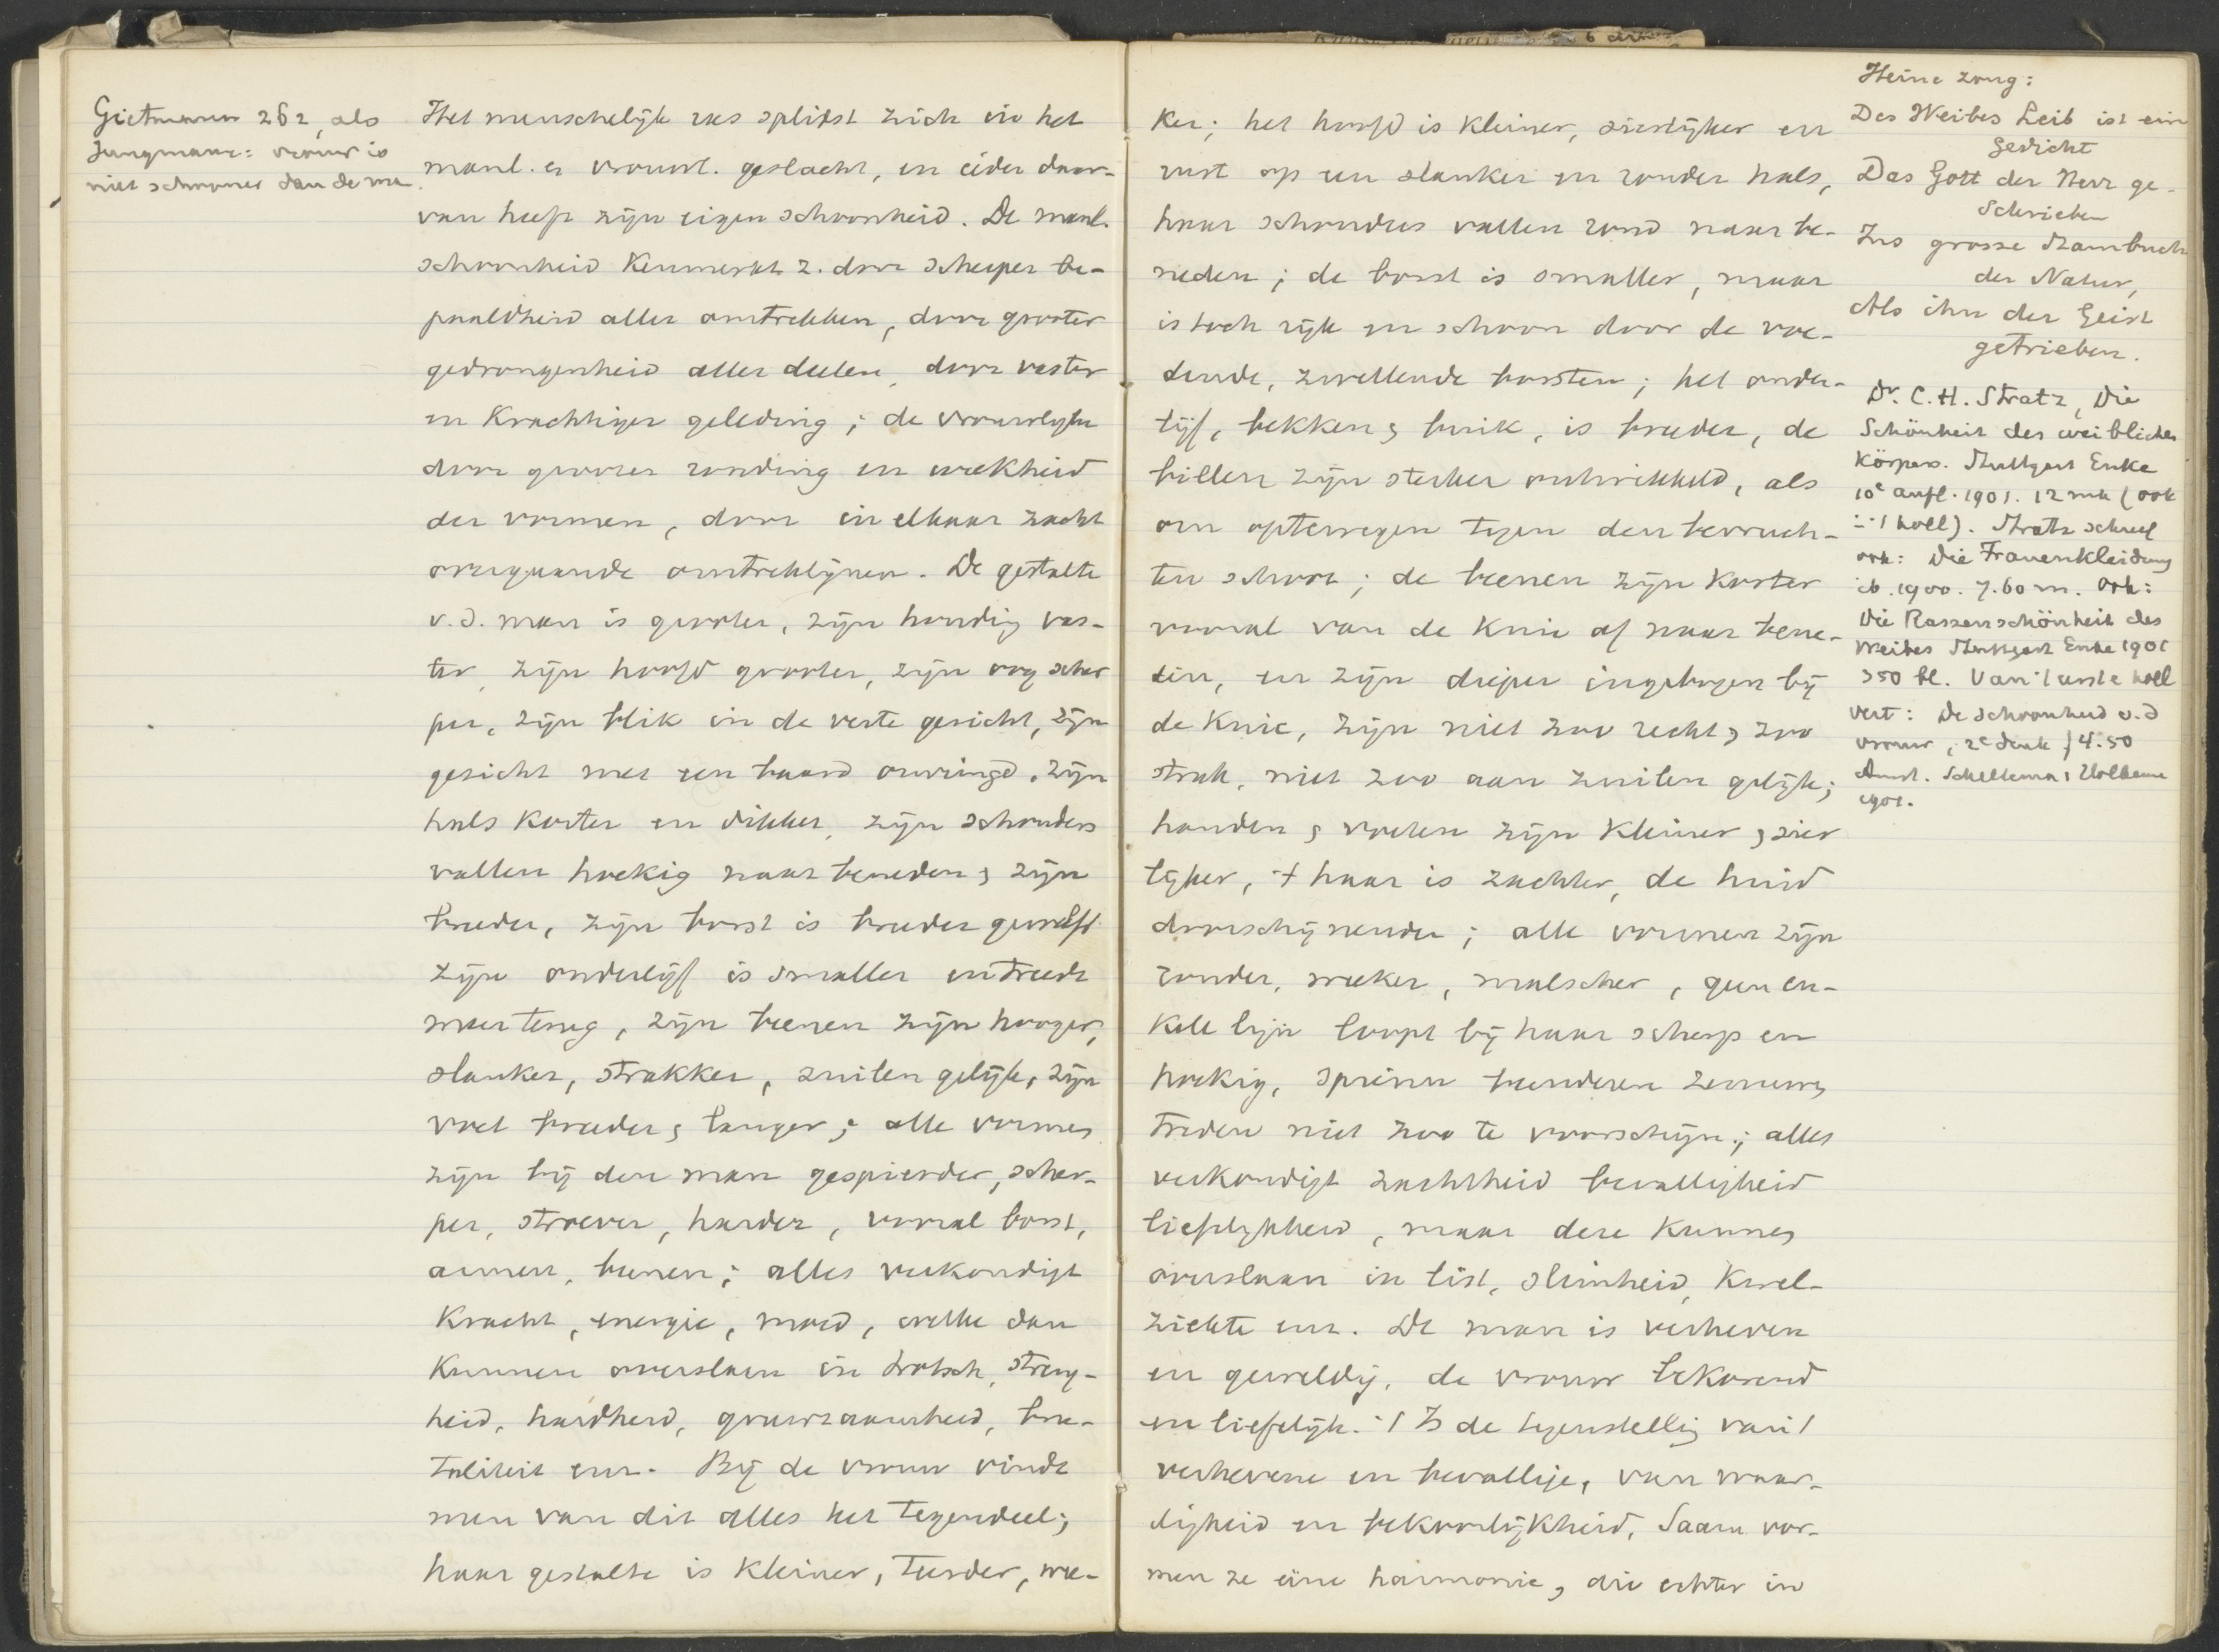 Gietmann 262, als
Jungmann: vrouw is
niet schooner dan de man.
Het menschelijk ras splitst zich in het
manl. en vrouwl. geslacht, en elder daar-
van heeft zijn eigen schoonheid. De manl.
schoonheid kenmerkt z. door scherper be-
paaldheid aller omtrekken, door grooter
gedrongenheid aller deelen, door vaster
en krachtiger geleding; de vrouwlyke
door grooter ronding en weekheid
der vormen, door in elkaar zacht
overgaande omtreklijnen. De gestalte
v. d. man is grooter, zijn houding vas-
ter, zijn hoofd grooter, zijn oog scher
per, zijn blik in de verte gericht, zijn
gezicht met een baard omringd, zijn
hals korter en dikker, zijn schouders
vallen hoekig naar beneden & zijn
breeder, zijn borst is breeder gewelfd
zijn onderlijf is smaller en treedt
meer terug, zijn beenen zijn hooger,
slanker, strakker, zuilen gelijk, zijn
voet breeder & langer; alle vormen
zijn bij den man gespierder, scher-
per, stroever, harder, vooral borst,
armen, beenen; alles verkondigt
kracht, energie, moed, welke dan
kunnen overslaan in trotsch, streng-
heid, hardheid, gruwzaamheid, bru-
taliteit enz. Bij de vrouw vindt
men van dit alles het tegendeel;
haar gestalte is kleiner, teerder, wee-
ker; het hoofd is kleiner, sierlijker en
rust op een slanker en ronder hals,
haar schouders vallen rond naar be-
neden; de borst is smaller, maar
is toch rijk en schoon door de voe-
dende, zwellende borsten; het onder-
lijf, bekken & buik, is breeder, de
billen zijn sterker ontwikkeld, als
om optewegen tegen den bevruch-
ten schoot; de beenen zijn korter
vooral van de knie af naar bene-
den, en zijn dieper ingebogen bij
de knie, zijn niet zoo recht & zoo
strak, niet zoo aan zuilen gelijk;
handen & voeten zijn kleiner & sier
lijker, 't haar is zachter, de huid
doorschijnender; alle vormen zijn
ronder, weeker, malscher, geen en-
kele lijn loopt bij haar scherp en
hoekig, spieren beenderen zenuwen
treden niet zoo te voorschijn; alles
verkondigt zachtheid bevalligheid
lieflykheid, maar deze kunnen
overslaan in list, slimheid, kwel-
ziekte enz. De man is verheven
en geweldig, de vrouw bekorend
en lieflijk. 't Is de tegenstelling van 't
verhevene en bevallige, van waar-
digheid en bekoorlijkheid, Saam vor-
men ze eene harmonie, die echter in
Heine zong:
Des Weibes Leib ist ein
Gedicht
Das Gott der Herr ge-
schrieben
Ins grosse Stambuch
der Natur,
Als ihn der Geist
getrieben.
Dr. C. H. Stratz, Die
Schönheit des weiblichen
Körpers. Stuttgart Enke
10e aufl. 1901. 12 mk (ook
in 't holl). Stratz schreef
ook: Die Frauenkleidung
ib. 1900. 7.60 m. Ook:
Die Rassenschönheit des
Weibes Stuttgart Enke 1901
350 bl. Van 't eerste holl
vert: De schoonheid v. d
vrouw, 2e druk f 4.50
Amst. Scheltema & Holkema
1901.